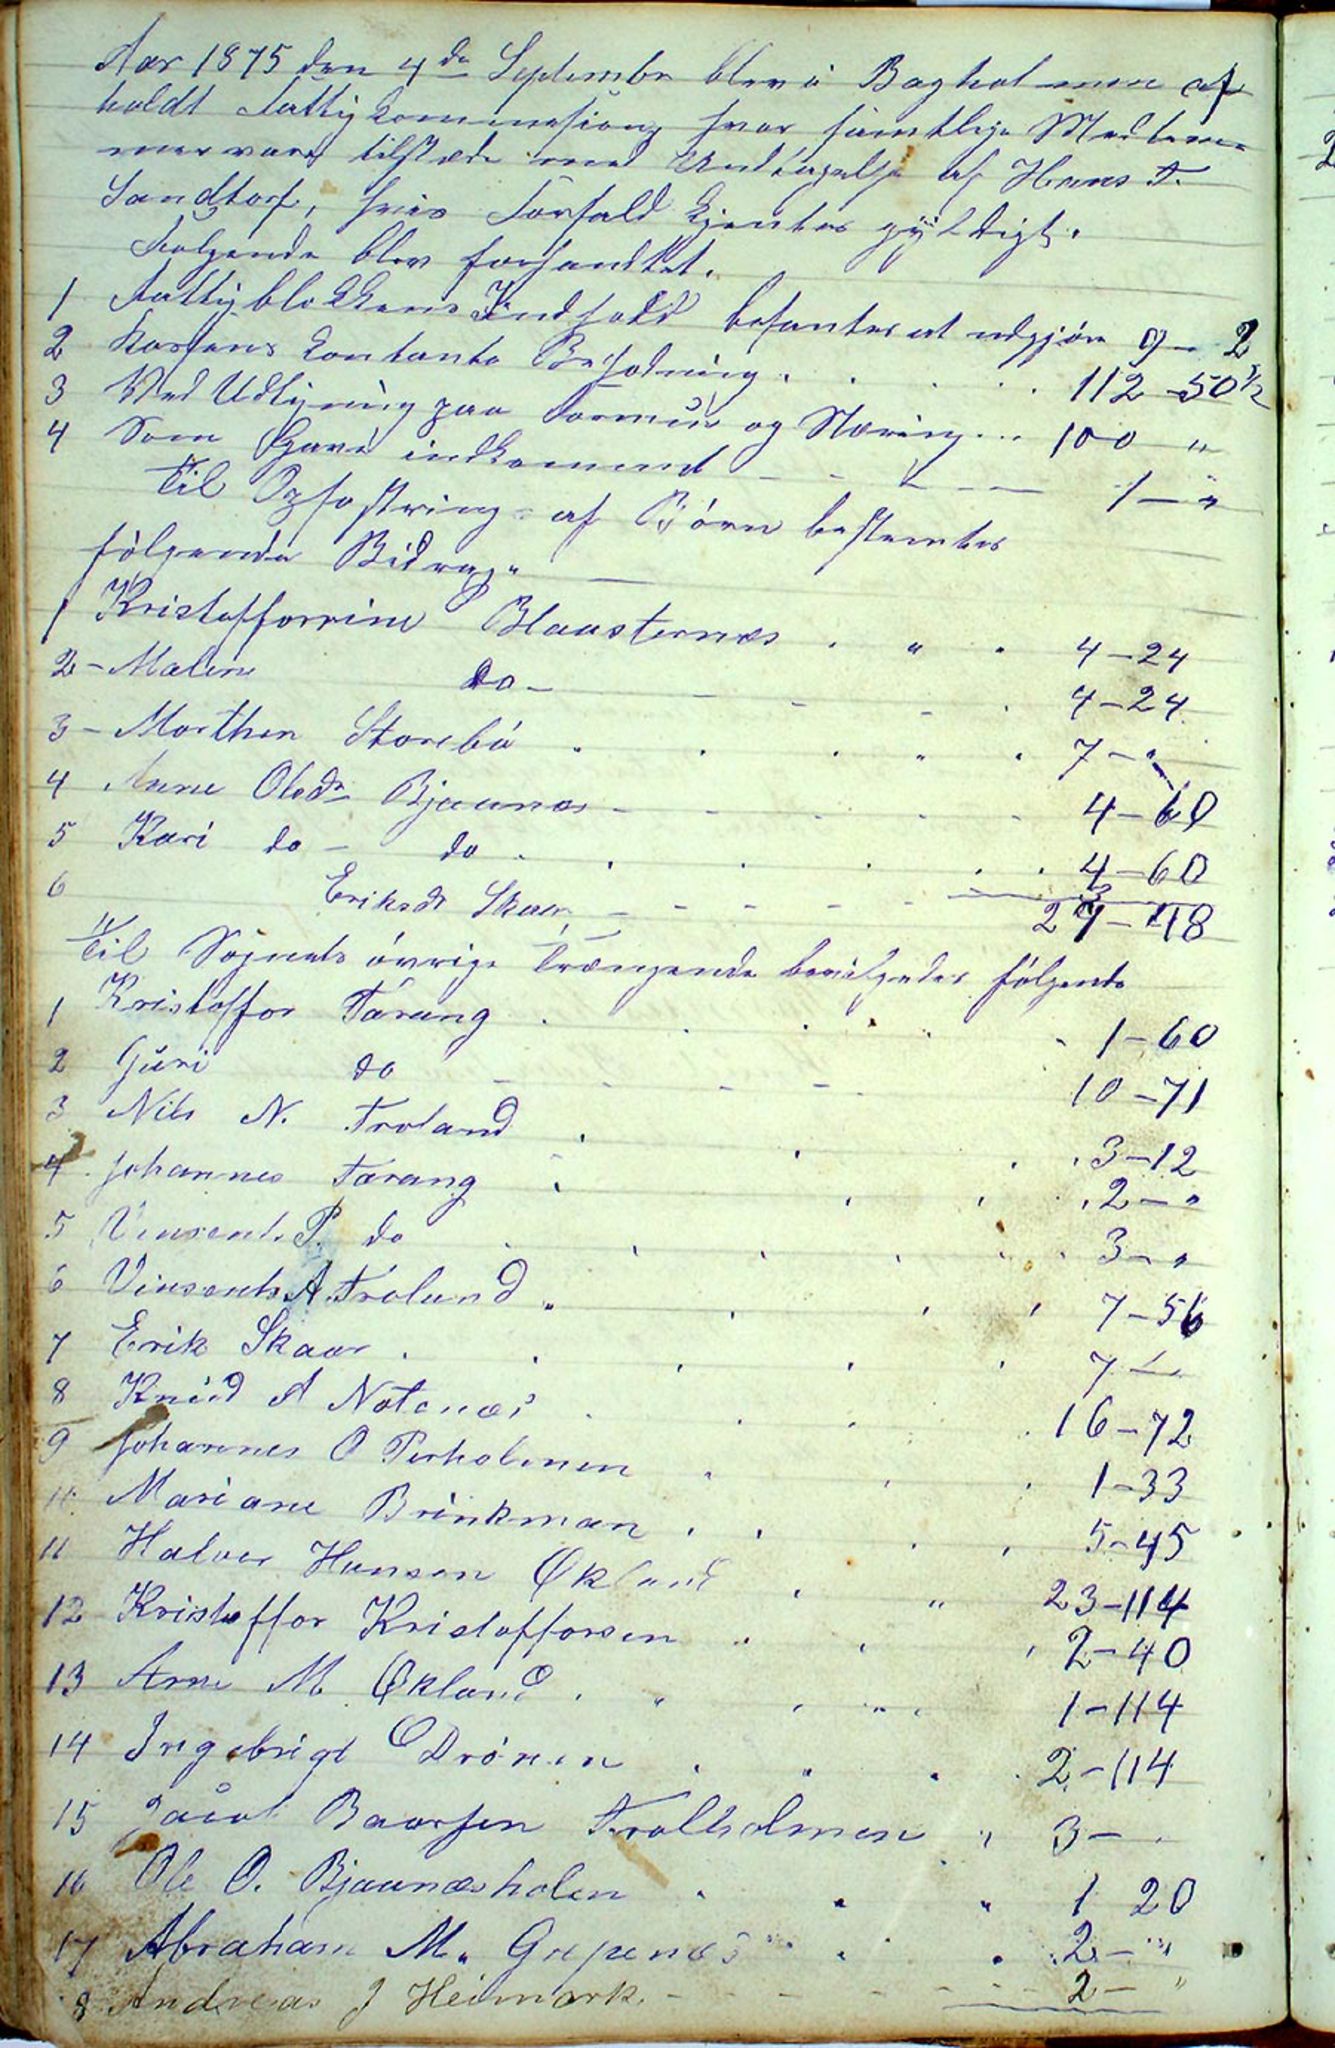 Aar 1875 den 4de Septembr blev i Bagholmen af
holdt Fattigkommission, hvor samtlige Medlem
mer vare tilstede med Undtagelse af Hans T.
Sandtorf, hvis Forfald kjentes gyldigt.
Følgende blev forhandlet.
1 Fattigblokkens Indhold befantes at udgjøre 9 - 2
2 Kassens Kontante Beholdning . . . . 112 - 50 1/2
3 Ved Udligning paa Formue og Næring ... 100 "
4 Som Gave indkommend - - - - 1 - "
Til Opfostring af Børn bestemtes
følgende Bidrag.
1 Kristofforrine Blaasternæs . " . 4 - 24
2 - Malene do - - - - . 4 - 24
3 - Morthen Storebø . . . " . 7 - "
4 Anne Olsdr Bjaanæs - - . . - 4 - 60
5 Kari do - do . . . . . . 4 - 60
6 Eriksdr Skaar - - - - - 3
27 - 48
Til Sognets øvrige Trængende bevilgedes følgende
1 Kristoffor Tærang . . . . . 1 - 60
2 Guri do - - - - 10 - 71
3 Nils N. Troland . . . . 3 - 12
4 Johannes Tærang . . . . 2 - "
5 Vinsents P. do . . . . . . 3 - "
6 Vinsents A. Troland " . . . 7 - 56
7 Erik Skaar . . . . . 7 - "
8 Knud A Notenæs . . . . 16 - 72
9 Johannes O Perholmen . . . 1 - 33
10 Mariane Brinkman . . . . 5 - 45
11 Halvor Hansen Økland . " 23 - 114
12 Kristoffor Kristofforsen . . . 2 - 40
13 Arne M Økland . " . " . 1 - 114
14 Ingebrigt O Drönen . " . . 2 - 114
15 Jacob Baarsen Trolholmen " . 3 - .
16 Ole O. Bjaanæsholen . . " 1 20
17 Abraham M. Grepenæs " . . 2 - "
18 Andreas J Heimark. - - - - - - 2 - "